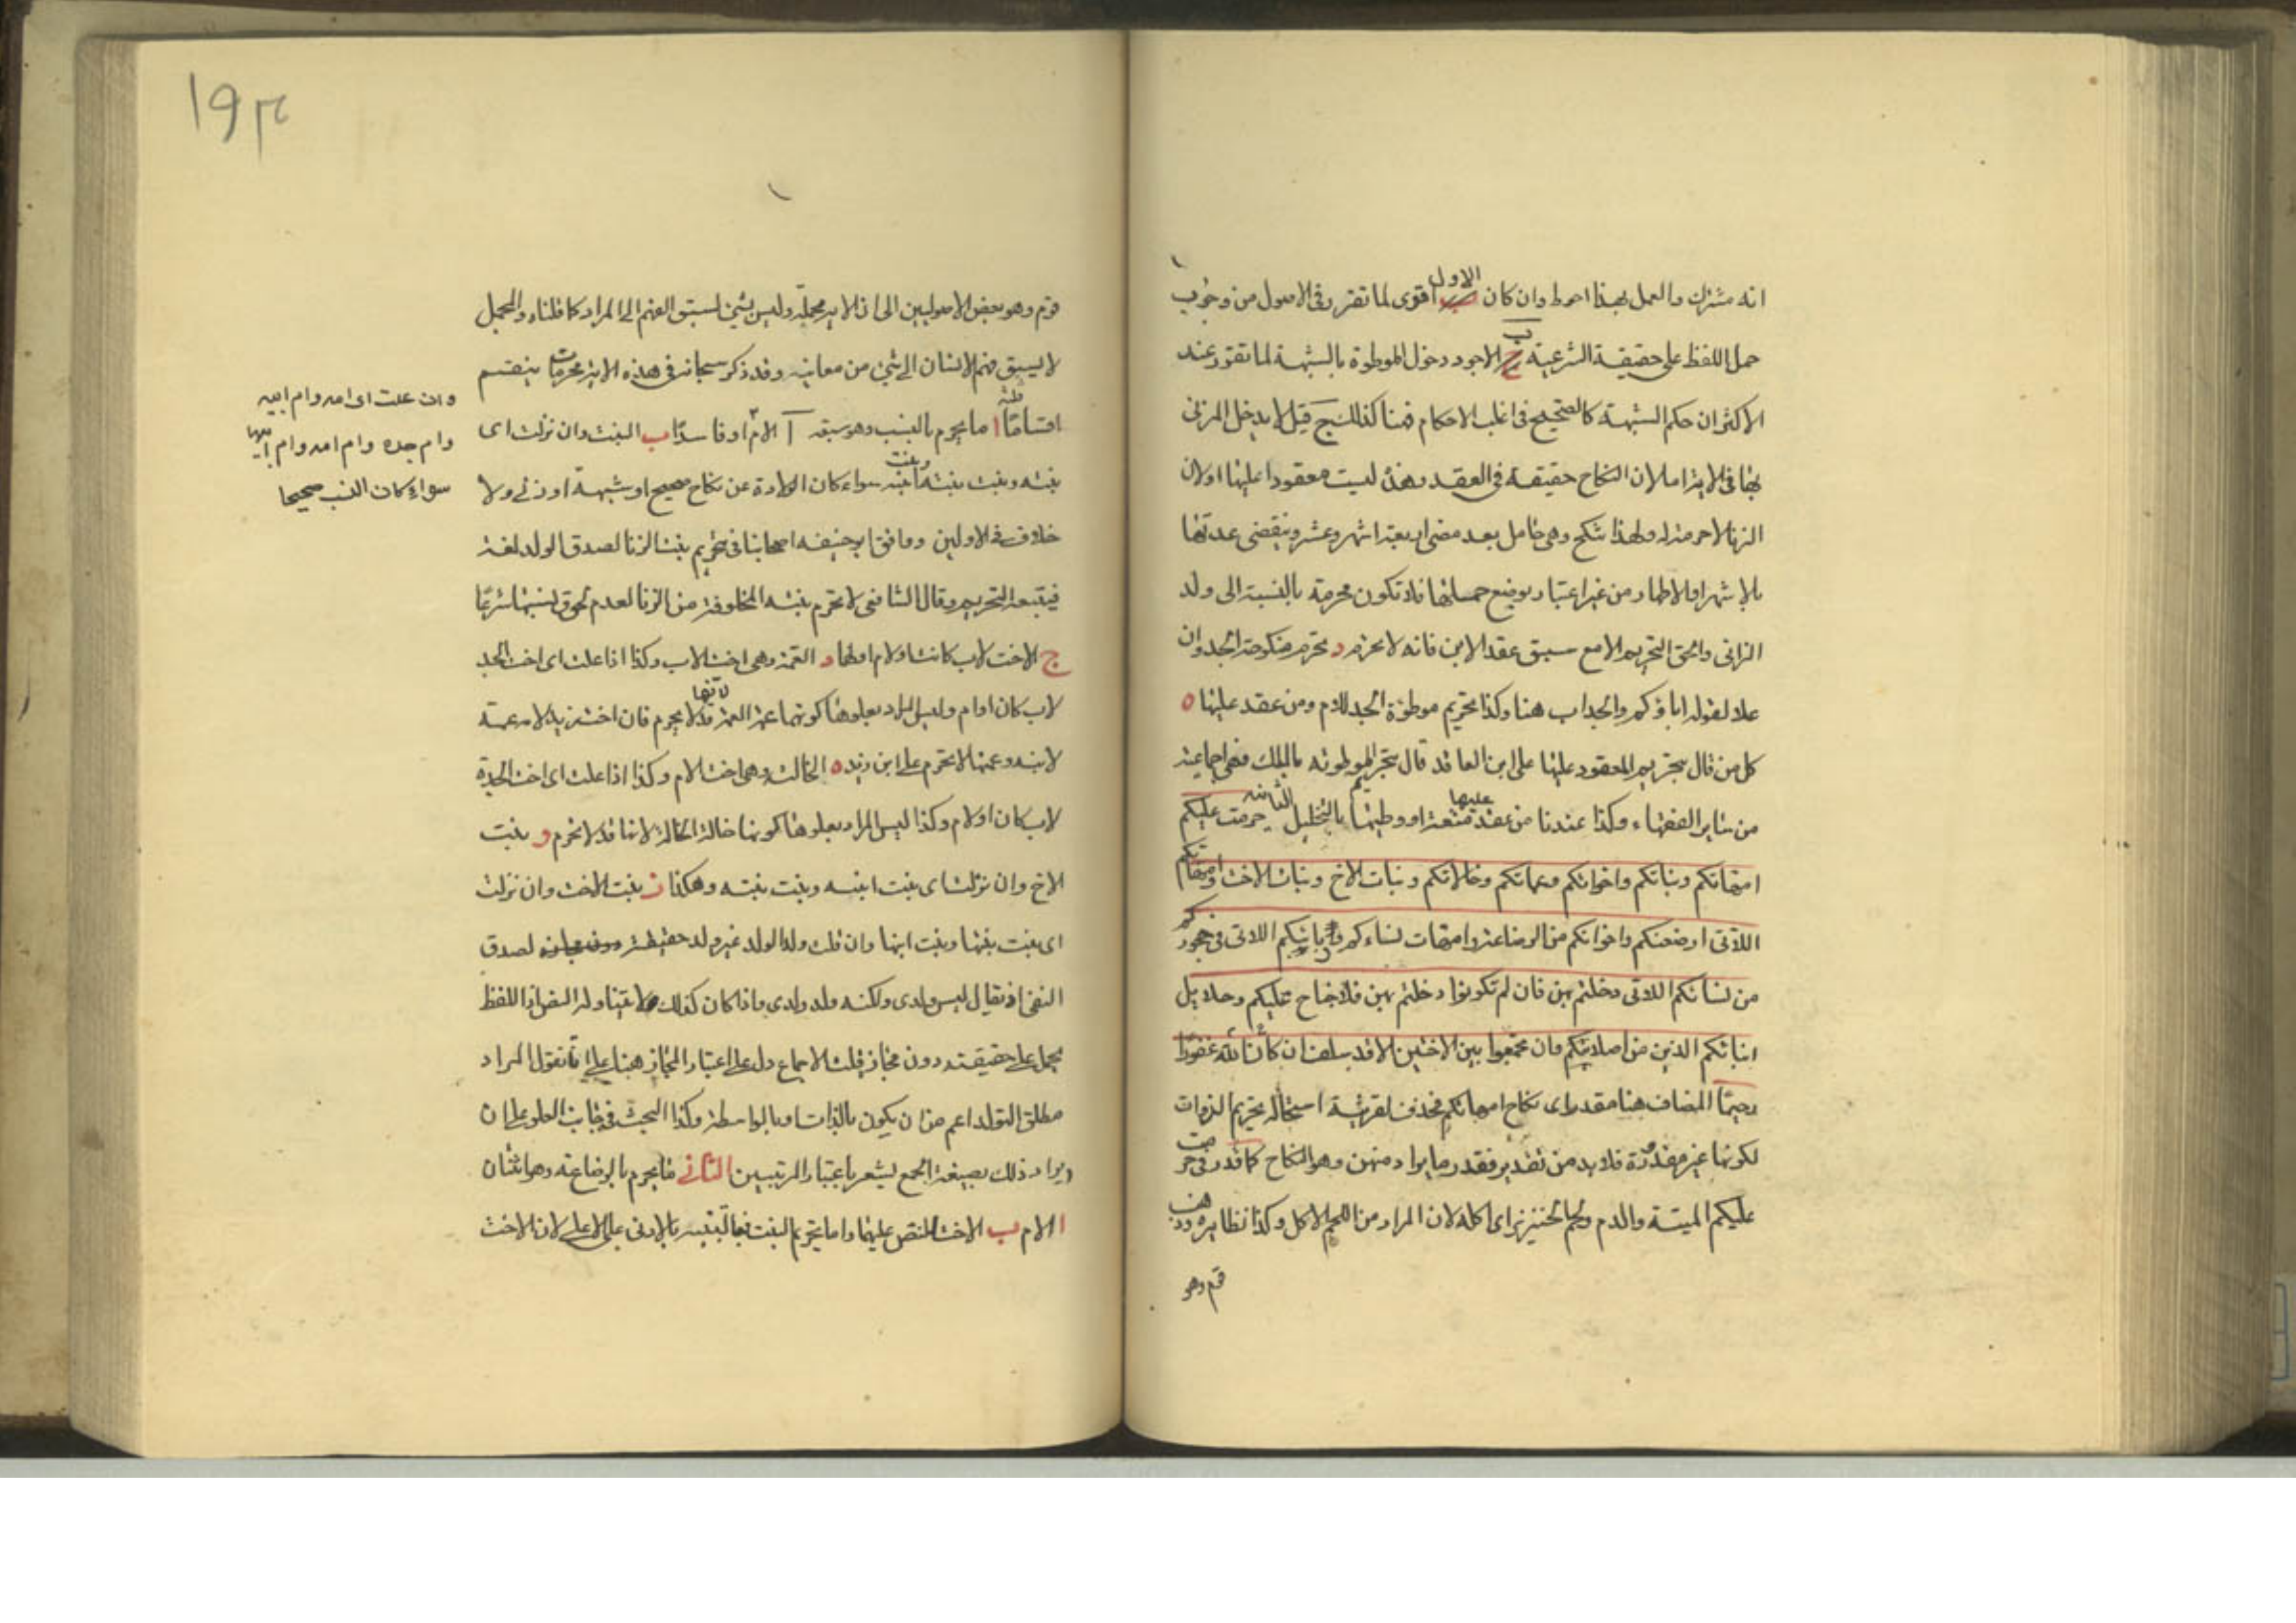 انه مشترك والعمل بهذا احوط وان كان الاول اقوى لما تقرر فى الاصول من وجوب
حمل اللفظ على حقيقة الشرعية ب الاجود دخول الموطوءة بالشبهة لما تقرر عند
الاكثر ان حكم الشبهة كالصحيح فى اغلب الاحكام فهنا كذلك ج قيل لا يدخل المزنى
بها فى الاية اما لان النكاح حقيقة فى العقد وهذه ليست معقودا عليها او لان
الزنا لا حرمة له ولهذا تنكح وهى حامل بعد مضى اربعة اشهر وعشر وينقضى عدتها
بالاشهر او الاطهار من غير اعتبار بوضع حملها فلا تكون محرمة بالنسبة الى ولد
الزانى والحق التحريم الا مع سبق عقد الابن فانه لا تحرم د تحرم منكوحة الجد وان
علا لقوله اباؤكم والجد اب هنا وكذا تحريم موطوءة الجد للام ومن عقد عليها ه
كل من قال بتحريم المعقود عليها على ابن العاقد قال بتحريم الموطوئه بالملك فهى اجماعية
من ساير الفقهاء وكذا عندنا من عقد عليها متعة او وطيها بالتحليل الثانية حرمت عليكم
امهاتكم وبناتكم واخواتكم وعماتكم وخالاتكم وبنات الاخ وبنات الاخت وامهاتكم
اللاتى ارضعنكم واخواتكم من الرضاعة وامهات نساءكم وربائبكم اللاتى فى حجوركم
من نسائكم اللاتى دخلتم بهن فان لم تكونوا دخلتم بهن فلا جناح عليكم وحلايل
ابنائكم الذين من اصلابكم وان تجمعوا بين الاختين الا قد سلف ان الله كان غفورا
رحيما المضاف هنا مقدر اى نكاح امهاتكم فحذف لقرينة استحالة تحريم الذوات
لكونها غير مقدرة فلا بد من تقدير فقدر ما يراد منهن وهو النكاح كما قدر فى حرمت
عليكم الميتة والدم ولحم الخنزير اى اكله لان المراد من اللحم الاكل وكذا نظايره وذهب
قوم وهو
١٩٣
قوم وهو بعض الاصوليين الى ان الاية مجملة وليس بشئ لسبق الفهم الى المراد كما قلناه والمجمل
لا يسبق فهم الانسان الى شئ من معانيه وقد ذكر سبحانه فى هذه الاية محرمات ينقسم
اقساما ا ما يحرم بالنسب وهو سبعة آ الام او فاسدا ب البنت وان نزلت اى
بنته وبنت بنته وبنت ابنه سواء كان الولادة عن نكاح صحيح او شبهة او زنى ولا
خلاف فى الاولين ووافق ابو حنيفه اصحابنا فى تحريم بنت الزنا لصدق الولد لغة
فيتبعه التحريم وقال الشافعى لا تحرم بنته المخلوقة من الزنا لعدم لحوق نسبها شرعا
ج الاخت لاب كانت او لام او لهما د العمة وهى اخت الاب وكذا اذا علت اى اخت الجد
لاب كان او ام وليس المراد بعلوها كونها عمة العمة لانها قد لا يحرم فان اخت زيد لامه عمة
لابنه وعمتها لا تحرم على ابن زيد ه الخالة وهى اخت الام وكذا اذا علت اى اخت الجدة
لاب كان او لام وكذا ليس المراد بعلوها كونها خالة الخالة لانها قد لا تحرم و بنت
الاخ وان نزلت اى بنت ابنه وبنت بنته وهكذا ز بنت الاخت وان نزلت
اى بنت بنتها وبنت ابنها وان قلت ولد الولد غير ولد حقيقة لصدق
النفى اذ يقال ليس ولدى ولكنه ولد ولدى واذا كان كذلك لا يتناوله النص اذ اللفظ
يحمل على حقيقته دون مجازه قلت الاجماع دل على اعتبار المجاز هنا على انا نقول المراد
مطلق التولد اعم من ان يكون بالذات او بالواسطة وكذا البحث فى جانب العلو على ان
ايراد ذلك بصيغة الجمع ليشعر باعتبار المرتبين الثانى ما يحرم بالرضاعة وهو اثنان
ا الام ب الاخت للنص عليهما واما تحريم البنت فبالتنبيه بالادنى على الاعلى لان الاخت
وان علت اى امه وام ابيه
وام جده وام امه وام ابيها
سواء كان النسب صحيحا